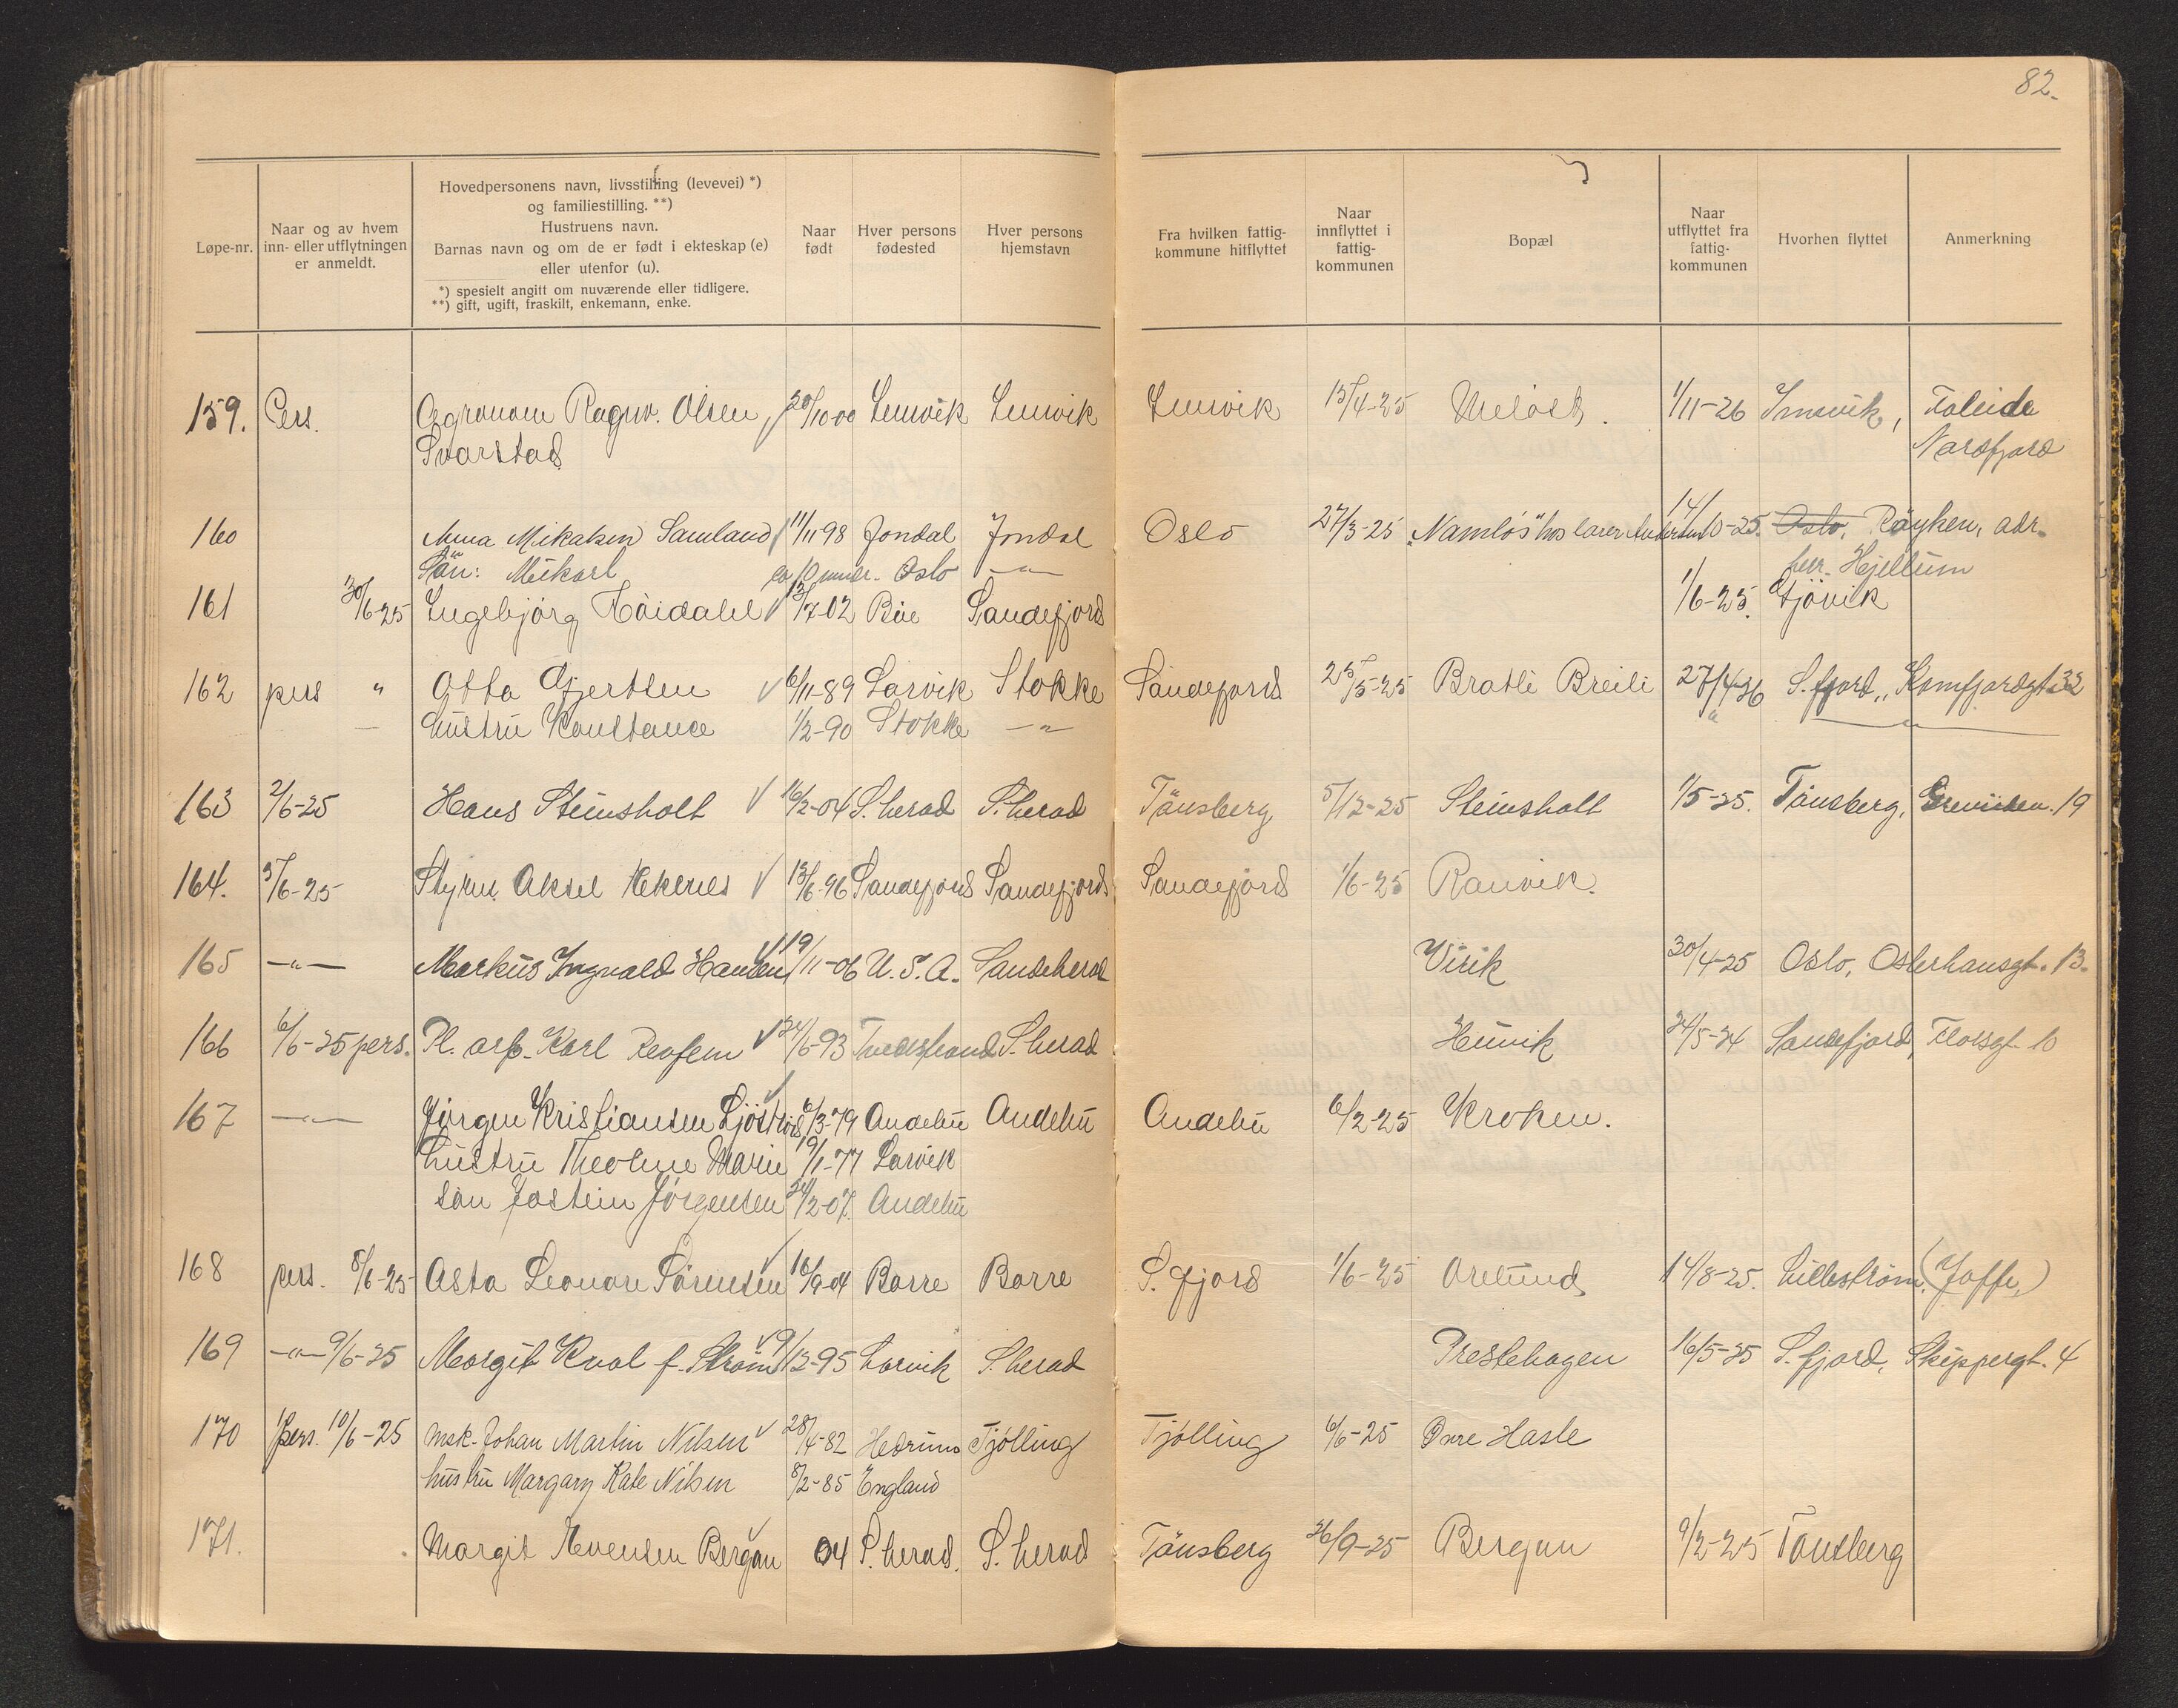 82.
Løpe-nr.
Naar og av hvem
inn- eller utflytningen
er anmeldt.
Hovedpersonens navn, livsstilling (levevei) *)
og familiestilling. **)
Hustruens navn.
Barnas navn og om de er født i ekteskap (e)
eller utenfor (u).
*) spesielt angitt om nuværende eller tidligere.
**) gift, ugift, fraskilt, enkemann, enke.
Naar
født
Hver persons
fødested
Hver persons
hjemstavn
Fra hvilken fattig-
kommune hitflyttet
Naar
innflyttet i
fattig-
kommunen
Bopæl
Naar
utflyttet fra
fattig-
kommunen
Hvorhen flyttet
Anmerkning
159. Pers. Agronom Ragnv. Olsen, 20/10-00 Lenvik Lenvik Lenvik 15/4-25 Meløst. 1/11-26
Svarstad Nordfjord
160 Anna Mikalsen Samland 11/11-98 Jondal Jondal Oslo 27/3-25 Namløs" hos lærer 14/10-25. Oslo, Røyken, adr.
Søn: Mikarl Oslo —"— Hjellum
161 30/6-25 Ingebjørg Høidahl 7-02 Bøe Sandefjord 1/6-25 Gjøvik
162 pers " Otto Gjertsen 6/11-89 Larvik Stokke Sandefjord 25/5-25 Bratli Breili 27/4-26 S.fjord,
hustru Konstance 1/2-90 Stokke —"— " —"—
163 2/6-25 Hans Steinsholt 16/2-04 S.herad S.herad Tønsberg 5/12-25 Steinsholt 1/5-25. Tønsberg, 19
164. 5/6-25 Styrm. Aksel Ekenes 13/6-96 Sandefjord Sandefjord Sandefjord 1/6-25 Ranvik.
165 —"— Markus Ingvald Hansen 19/11-06 U.S.A. Sandeherad Virik 30/4-25 Oslo, Osterhausgt. 13.
166 6/6-25 pers. Pl. arb. Karl 24/6-93 Tvedestrand S.herad Heimvik 24/5-24 Sandefjord, 10
167 —"— Jørgen Kristiansen 6/3-79 Andebu Andebu Andebu 6/2-25 Kroken.
hustru Theoline Marie 19/1-77 Larvik
søn Jostein Jørgensen 24/2-07. Andebu
168 pers. 8/6-25 Asta Leonore Sørensen 16/9-04 Borre Borre S.fjord 1/6-25 Orelund 14/8-25. Lillestrøm. (Joffe.)
169 —"— 9/6-25 Margit Kval f. Strøm 9/12-95 Larvik S.herad Prestehagen 16/5-25 S.fjord, Skippergt. 4
170 Pers. 10/6-25 msk. Johan Martin Nilsen 28/4-82 Hedrum Tjølling Tjølling 6/6-25 Øvre Hasle
hustru Margary Kate Nilsen 8/2-85 England
171. Margit Evensen Bergan 04 S.herad. S.herad Tønsberg 26/9-25 Bergan 9/2-25 Tønsberg